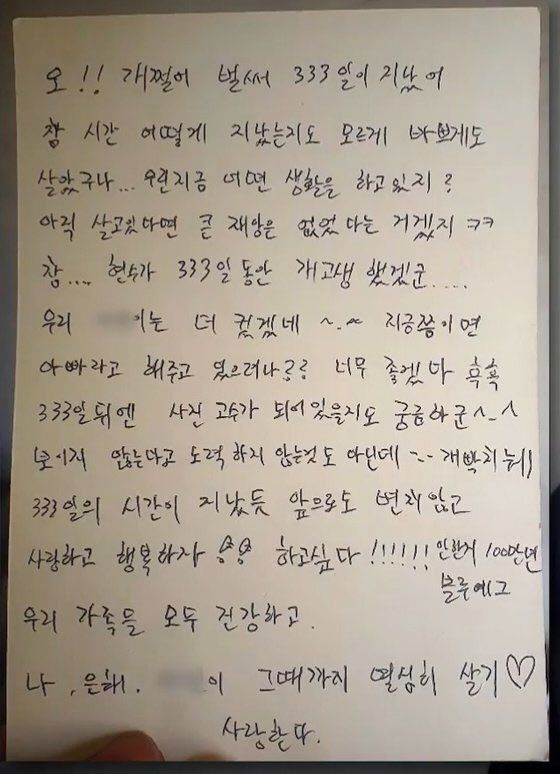 오!! 개쩔어 벌써 333일이 지났어
참 시간 어떻게 지났는지도 모르게 바쁘게도
살았구나... 우린지금 어떤 생활을 하고있지?
아직 살고있다면 큰 재앙은 없었다는 거겠지 ㅋㅋ
참.... 현수가 333일동안 개고생 했겠군....
우리 이는 더 컸겠네 ~.~ 지금쯤이면
아빠라고 해주고 있으려나?? 너무 좋겠다 흑흑
333일뒤엔 사진 고수가 되어있을지도 궁금하군^-^
보이지 않는다고 노력하지 않는것도 아닌데 -- 개빡치뉘
333일의 시간이 지났듯 앞으로도 변치않고
사랑하고 행복하자 하고싶다!!!!!! 안한지 100만년
블루예그
우리 가족들 모두 건강하고.
나, 은해. 이 그때까지 열심히 살기♡
사랑한다.